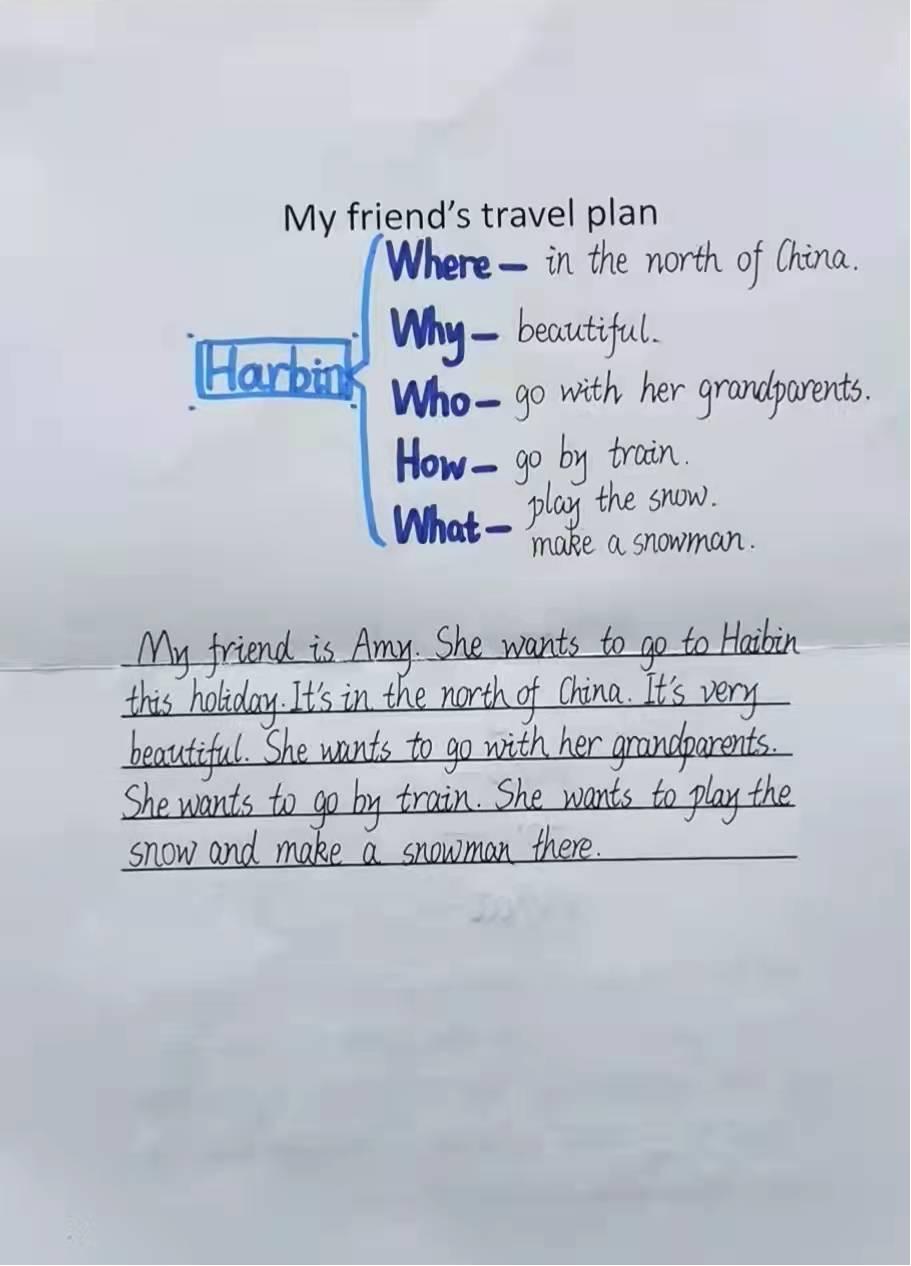 My friend's travel plan
Where — in the north of China.
Why — beautiful.
Harbin
Who — go with her grandparents.
How — go by train.
What — play the snow.
make a snowman.
My friend is Amy. She wants to go to Haibin
this holiday. It's in the north of China. It's very
beautiful. She wants to go with her grandparents.
She wants to go by train. She wants to play the
snow and make a snowman there.